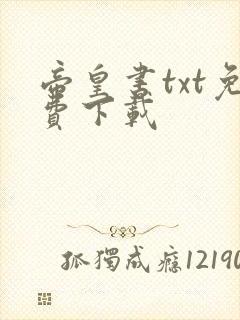 帝皇書txt免
費下載
孤獨成癮12190